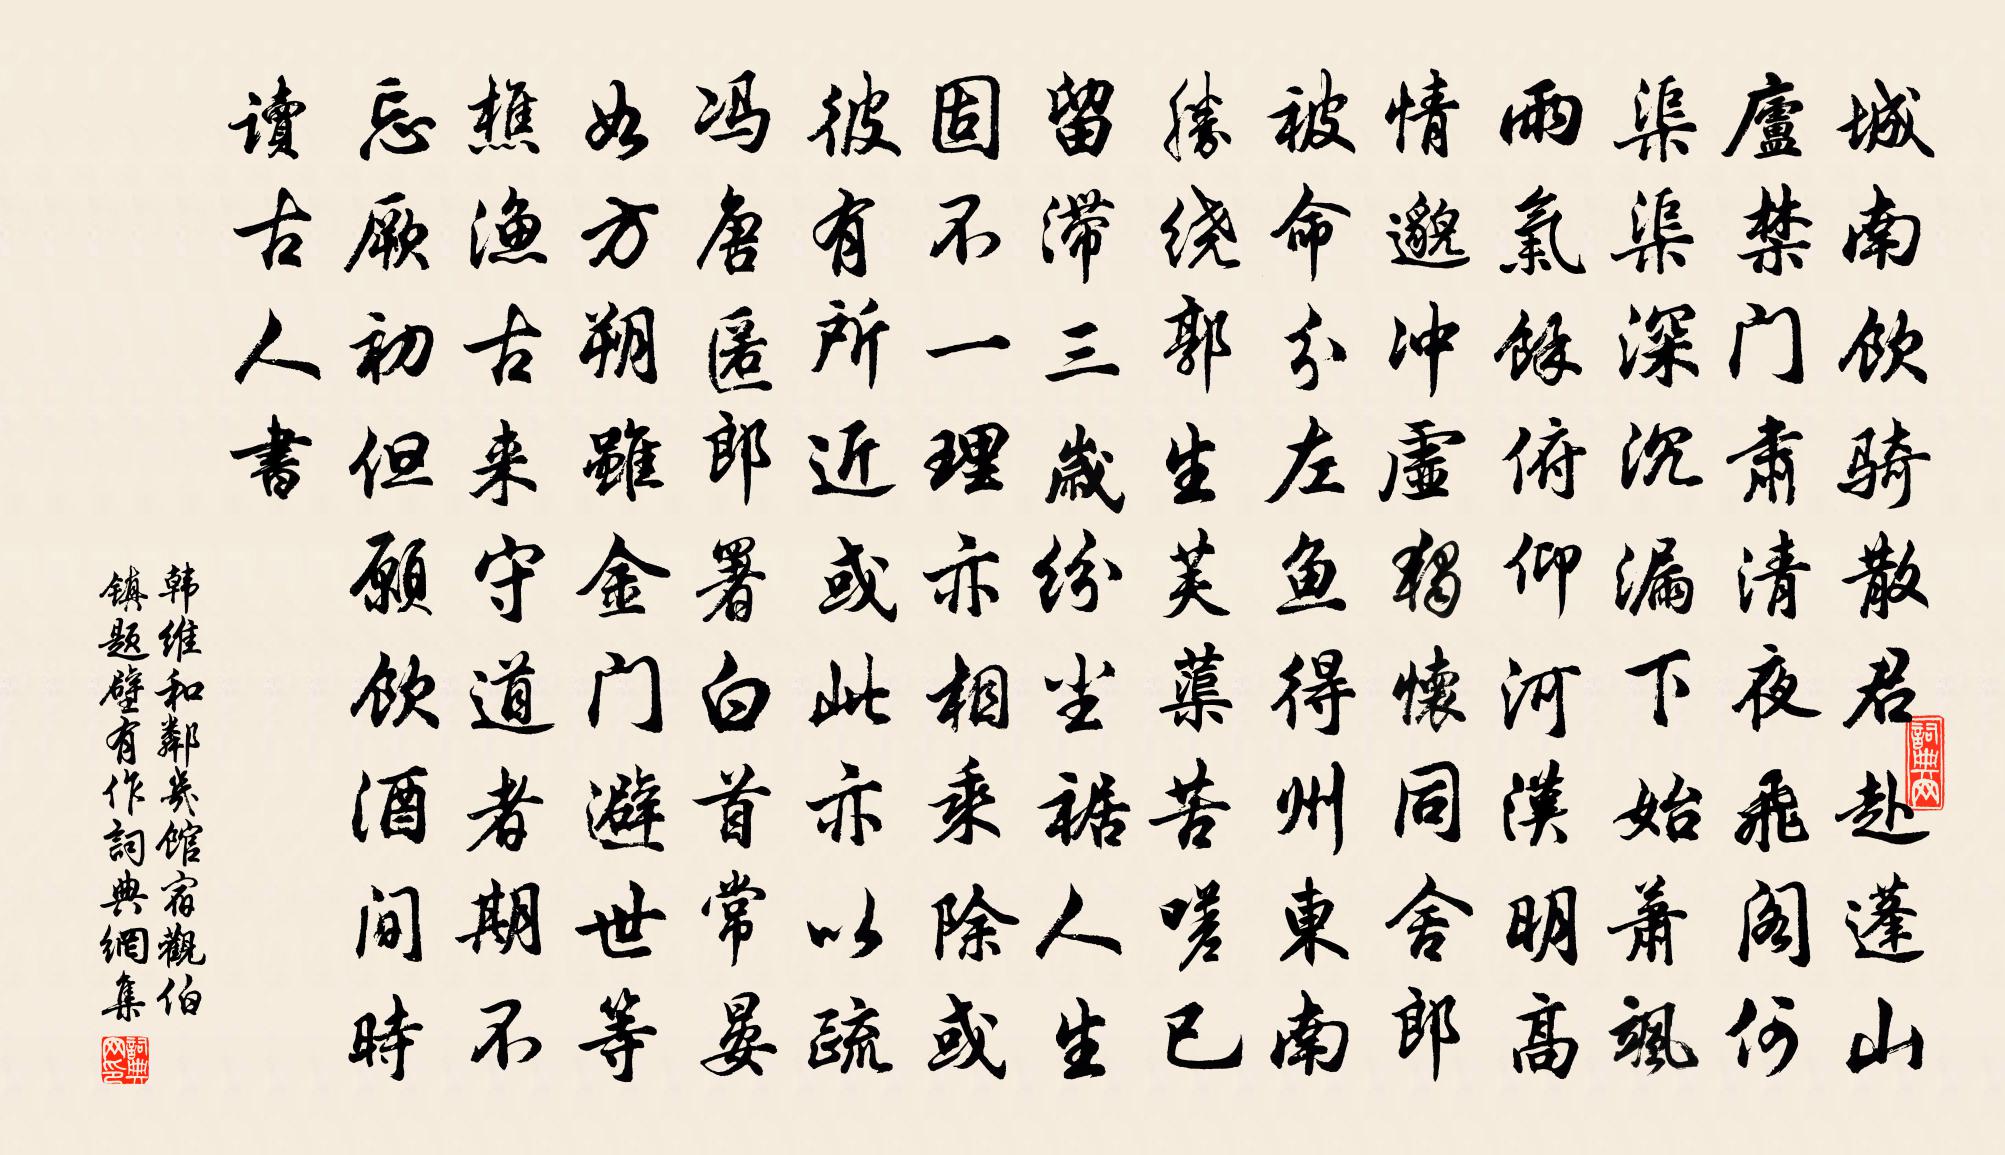 城南飲骑散君赴蓬山
廬禁门肅清夜飛阁何
渠渠深沉漏下始蕭颯
雨氣餘俯仰河漢明高
情邈冲虛獨懷同舍郎
被命分左鱼得州東南
勝绕郭生芙蕖苦嗟已
留滞三歲纷坐裾人生
固不一理亦相乘除或
彼有所近或此亦以疏
冯唐匿郎署白首常晏
如方朔雖金门避世等
樵渔古来守道者期不
忘厥初但願飲酒间時
讀古人書
韩维和鄰幾馆宿觀伯
镇题壁有作詞典網集
詞典网
詞典网印